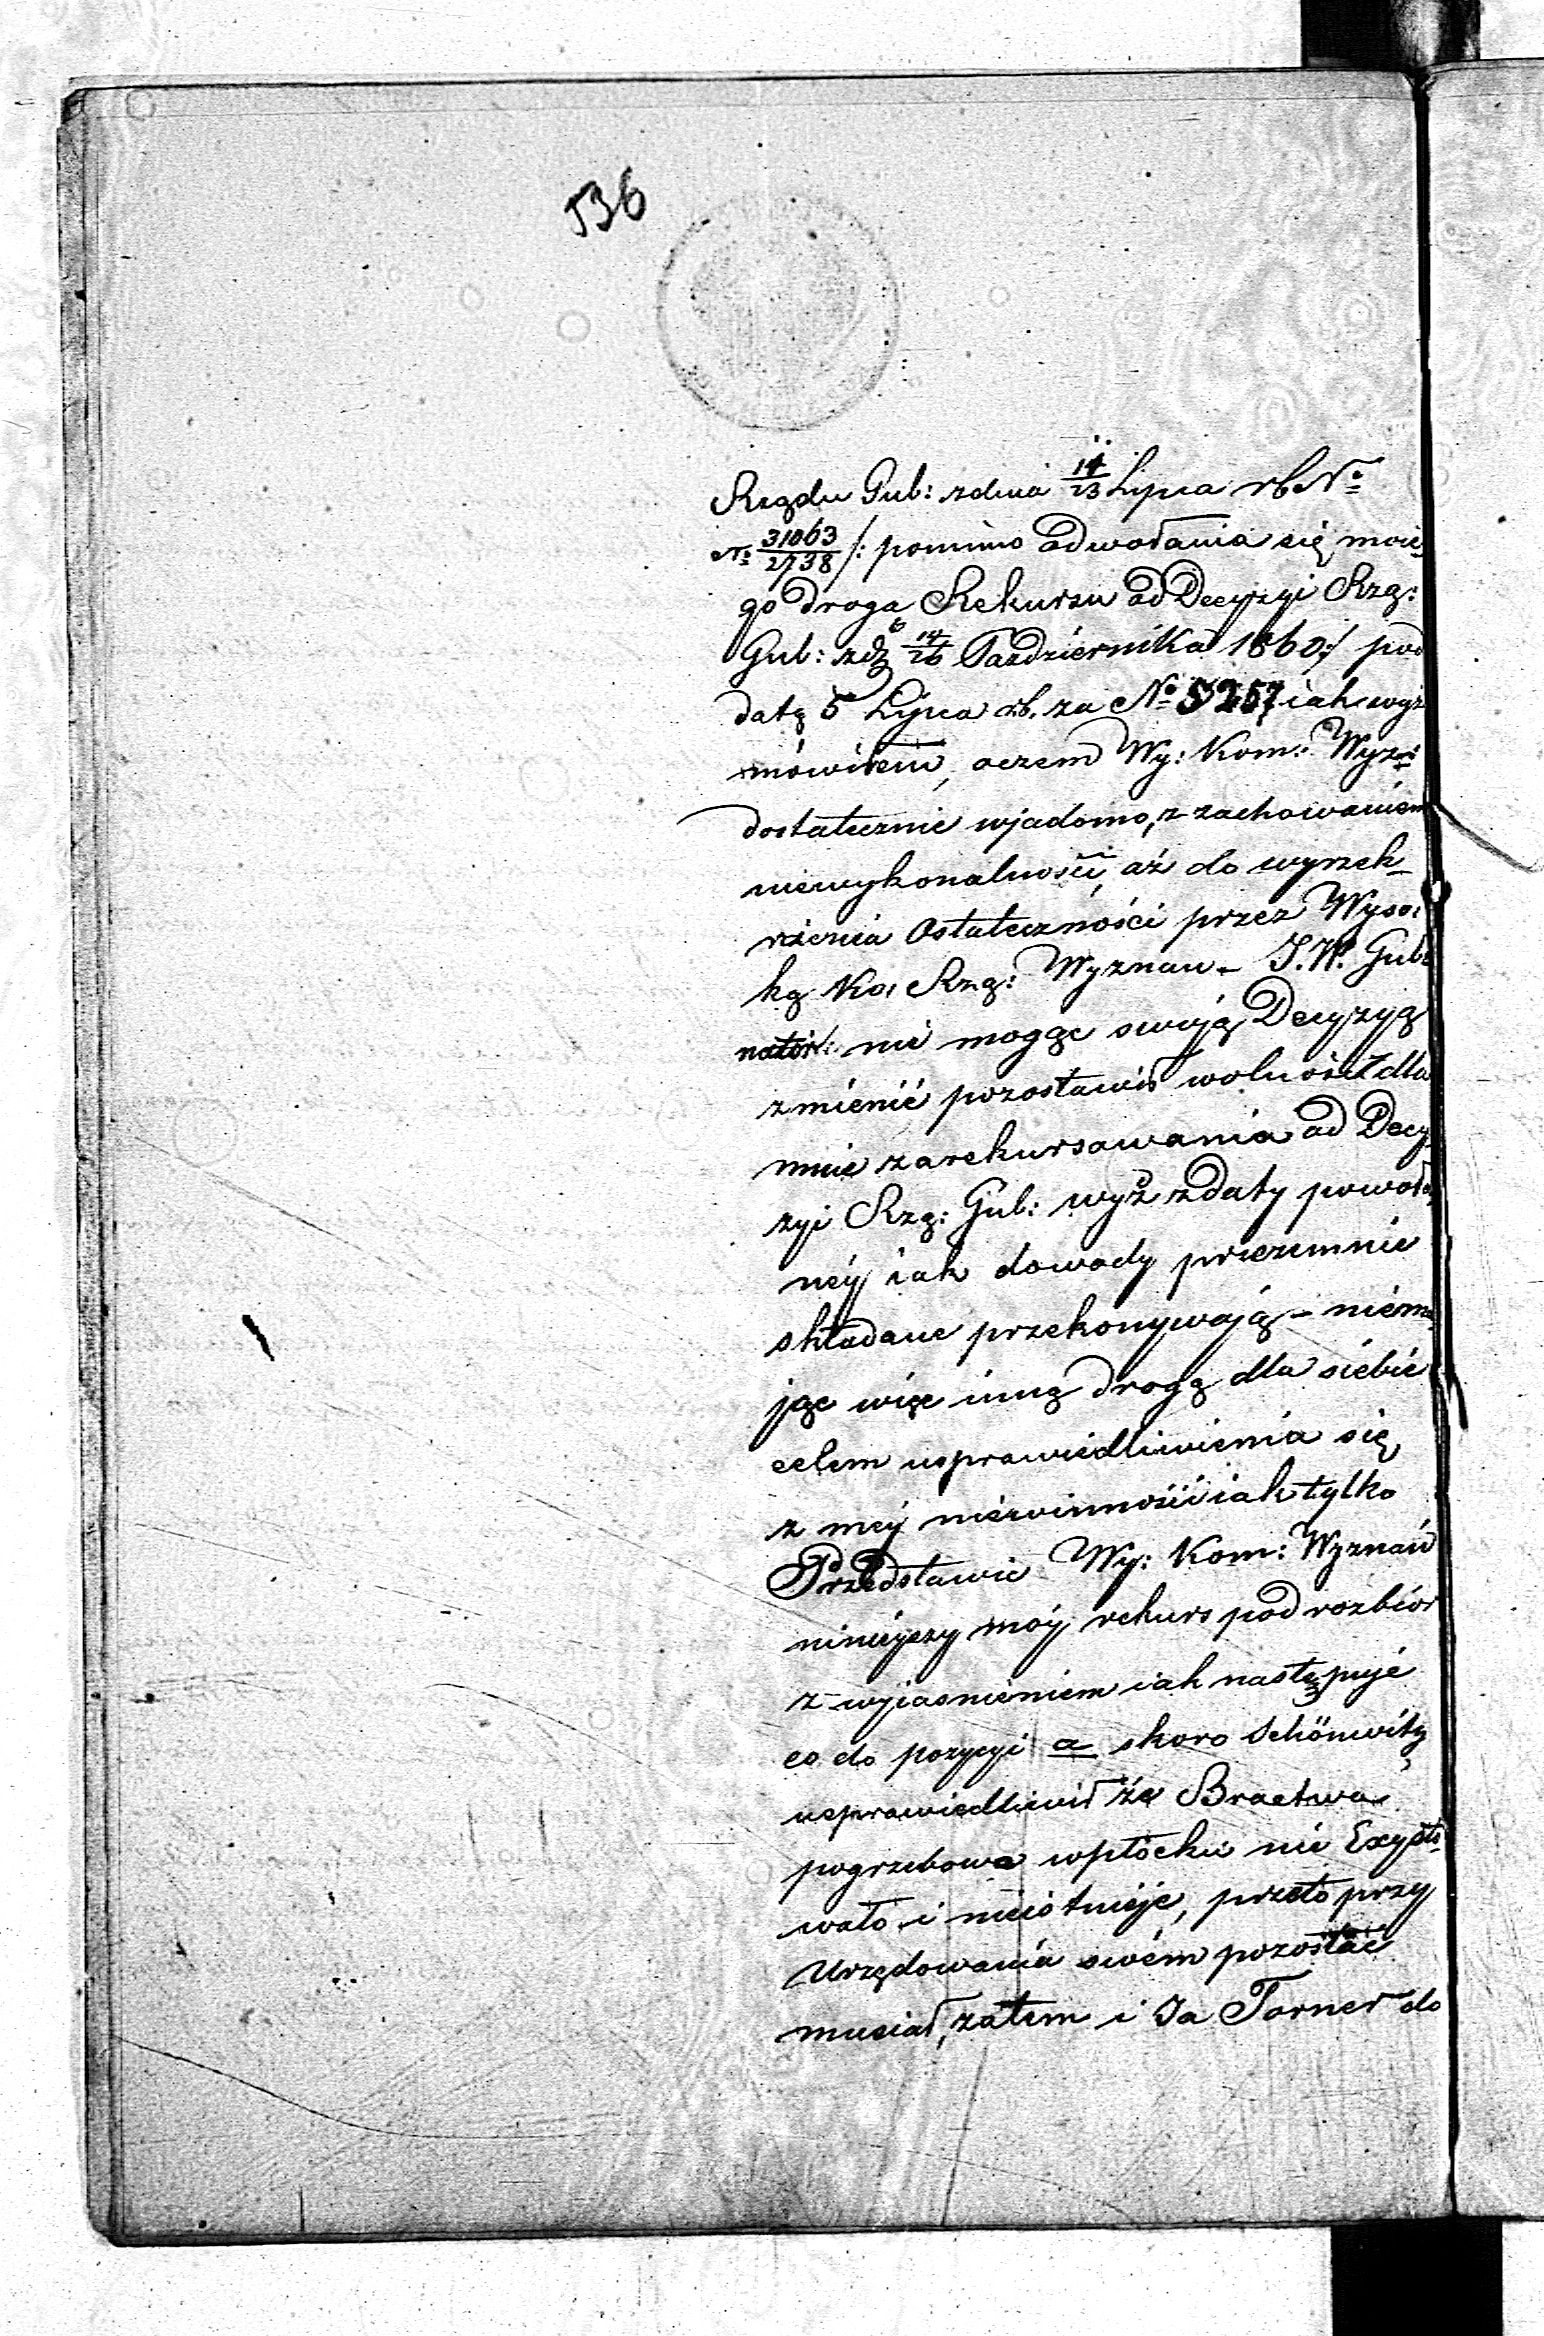 536
Rządu Gub: z dnia 14/23 Lipca rb No
No 31063/2738 /: pomimo odwołania się moie
go drogą Rekursu od Decyzyi Rzą:
Gub: zd 14/26 Października 1860 :/ pod
datą 5 Lipca rb. za No 5257 iak wyż
mówiłem, oczem Wy: Kom: Wyzn:
dostatecznie wjadomo, z zachowaniem
niewykonalności, aż do wyrzek-
rzeczenia Ostateczności przez Wyso-
ką Ko: Rzą: Wyznań - J.W. Gube
nator: nie mogąc swoją Decyzyą
zmienić pozostawił wolność dla
mnie zarekursowania od Decy
zyi Rzą: Gub: wyż z daty powoła
néy iak dowody przezemnie
składane przekonywają - niema
jąc więc inną drogą dla siebie
celem usprawiedliwienia się
z méy niéwinności iak tylko
Przedstawic Wy: Kom: Wyznań
niniéyszy móy rekurs pod rozbiór
z wyiasnieniem iak następujé
co do pozycyi a skoro Schönwitz
usprawiedliwił że Bractwa
pogrzebowe wpłocku nie Exysto
wało i nieistnieje, przeto przy
Urzędowania swém pozostać
musiał, zatem i Ja Torner do